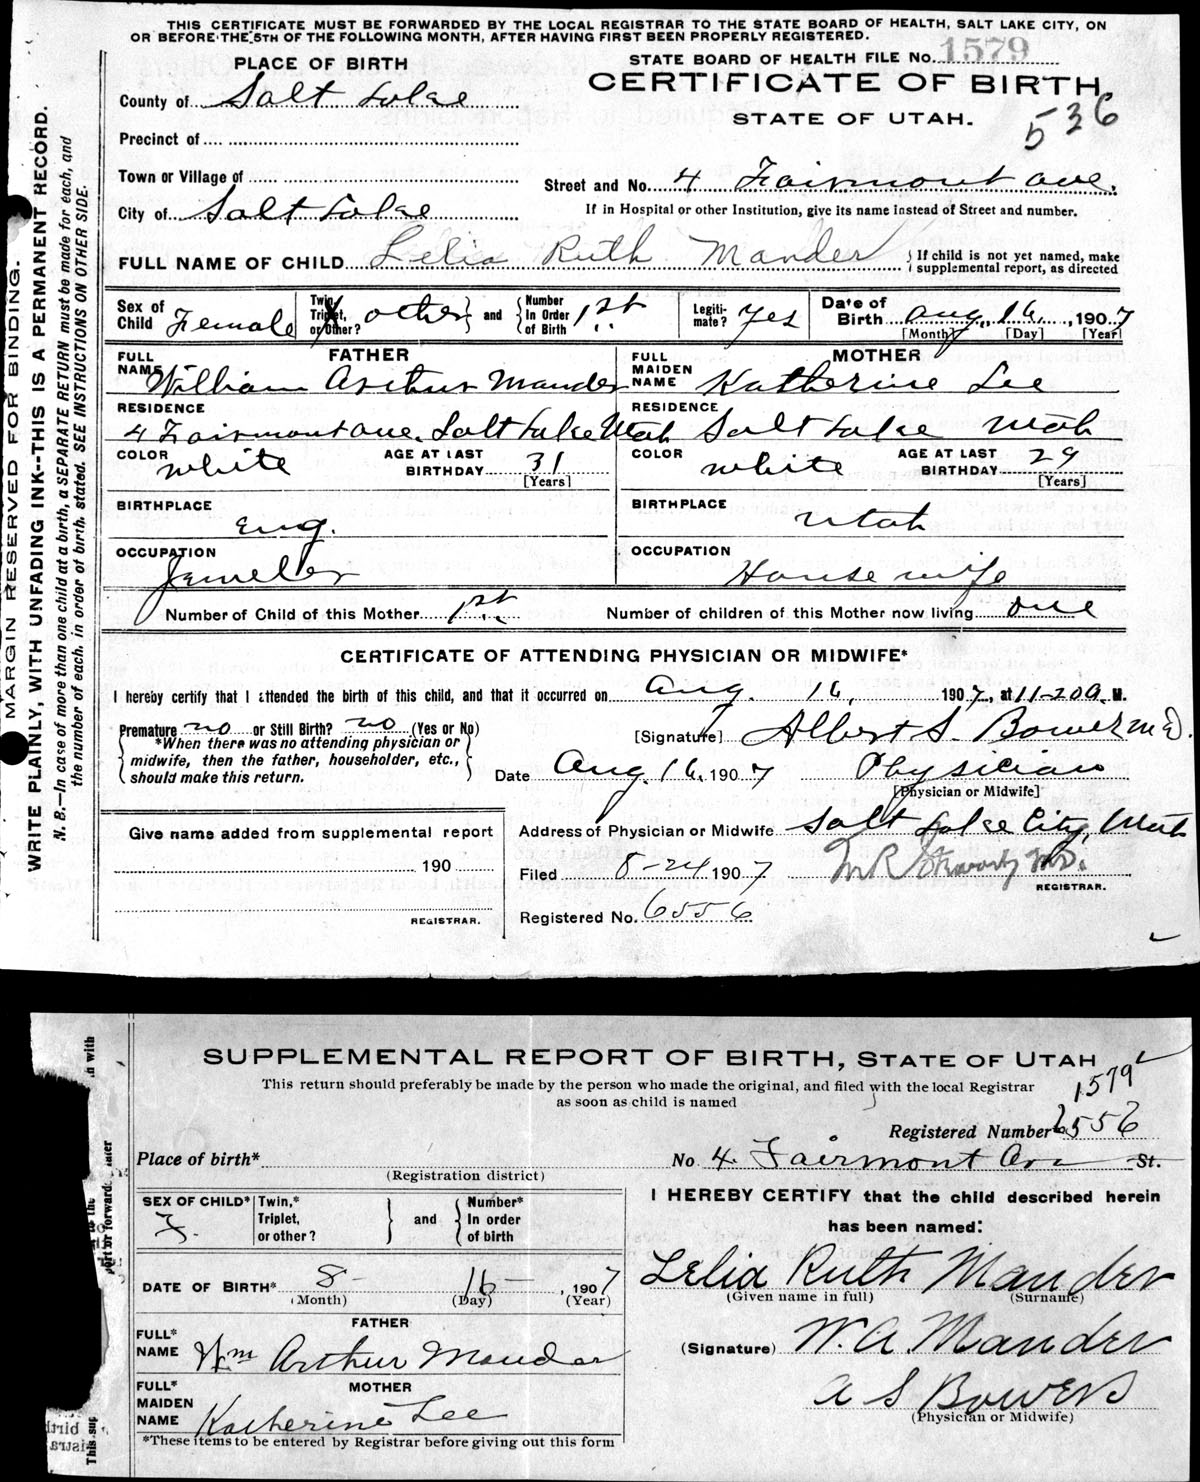 THIS CERTIFICATE MUST BE FORWARDED BY THE LOCAL REGISTRAR TO THE STATE BOARD OF HEALTH, SALT LAKE CITY, ON
OR BEFORE THE 5TH OF THE FOLLOWING MONTH, AFTER HAVING FIRST BEEN PROPERLY REGISTERED.
MARGIN RESERVED FOR BINDING.
WRITE PLAINLY, WITH UNFADING INK--THIS IS A PERMANENT RECORD.
N. B.—In case of more than one child at a birth, a SEPARATE RETURN must be made for each, and
the number of each, in order of birth, stated. SEE INSTRUCTIONS ON OTHER SIDE.
PLACE OF BIRTH
County of Salt Lake
Precinct of
Town or Village of
City of Salt Lake
STATE BOARD OF HEALTH FILE No. 1579
CERTIFICATE OF BIRTH.
STATE OF UTAH.
536
Street and No. 4 Fairmont ave.
If in Hospital or other Institution, give its name instead of Street and number.
FULL NAME OF CHILD Lelia Ruth Mander } If child is not yet named, make
supplemental report, as directed
Sex of Child Female
Twin, Triplet, or Other? other } and { Number In Order of Birth 1st
Legitimate? Yes
Date of Birth Aug. 16, 1907
[Month] [Day] [Year]
FATHER
FULL NAME William Arthur Mander
RESIDENCE
4 Fairmont ave. Salt Lake Utah
COLOR white AGE AT LAST BIRTHDAY 31
[Years]
BIRTHPLACE
Eng.
OCCUPATION
Jeweler
MOTHER
FULL MAIDEN NAME Katherine Lee
RESIDENCE
Salt Lake Utah
COLOR white AGE AT LAST BIRTHDAY 29
[Years]
BIRTHPLACE
Utah
OCCUPATION
Housewife
Number of Child of this Mother 1st Number of children of this Mother now living one
CERTIFICATE OF ATTENDING PHYSICIAN OR MIDWIFE*
I hereby certify that I attended the birth of this child, and that it occurred on Aug. 16, 1907, at 11-20 a. M.
Premature no or Still Birth? no (Yes or No)
{ *When there was no attending physician or
midwife, then the father, householder, etc.,
should make this return. }
[Signature] Albert S. Bower M.D.
Date Aug. 16, 1907 Physician
[Physician or Midwife]
Give name added from supplemental report
190
REGISTRAR.
Address of Physician or Midwife Salt Lake City, Utah
Filed 8-24 1907
REGISTRAR.
Registered No. 6556
SUPPLEMENTAL REPORT OF BIRTH, STATE OF UTAH
This return should preferably be made by the person who made the original, and filed with the local Registrar
as soon as child is named
1579
Registered Number 6556
Place of birth*
(Registration district)
No. 4 Fairmont Ave St.
SEX OF CHILD* F.
Twin,* Triplet, or other? } and { Number* In order of birth
DATE OF BIRTH* 8- 16- , 1907
(Month) (Day) (Year)
FATHER
FULL* NAME Wm Arthur Mander
MOTHER
FULL* MAIDEN NAME Katherine Lee
*These items to be entered by Registrar before giving out this form
I HEREBY CERTIFY that the child described herein
has been named:
Lelia Ruth Mander
(Given name in full) (Surname)
(Signature) W. A. Mander
A S Bowers
(Physician or Midwife)